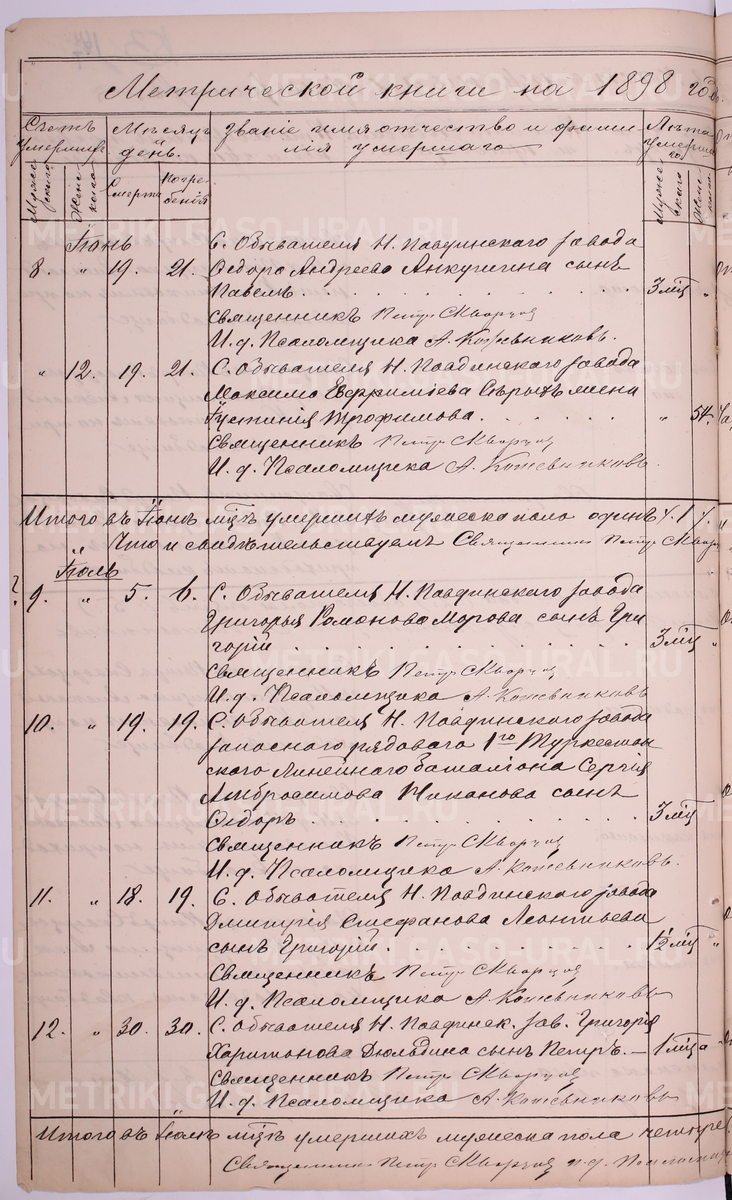 Метрической книги на 1898 годъ.
Счетъ умершихъ
Мѣсяцъ день.
Званіе имя отчество и фамилія умершаго
Лѣта умершаго
Мужескаго
Женскаго
Смерти
Погребенія
Мужескаго
Женскаго
Іюнь
С. Обывателя Н. Павдинскаго завода
8. " 19. 21. Ѳедора Андреева Анкушина сынъ
Павелъ 3 мѣц "
Священникъ Петръ Скворцов
И. д. Псаломщика А. Кожевниковъ.
" 12. 19. 21. С. Обывателя Н. Павдинскаго завода
Максима Евфиміева Сѣрыхъ жена
Іустинія Трофимова. " 54.
Священникъ Петръ Скворцов
И. д. Псаломщика А. Кожевниковъ.
Итого въ Іюнѣ мѣцѣ умершихъ мужеска пола одинъ
Что и свидѣтельствуемъ Священникъ Петръ Сквор
Іюль
? 9. " 5. 6. С. Обывателя Н. Павдинскаго завода
Григорья Романова Морова сынъ Гри
горій 3 мѣц "
Священникъ Петръ Скворцов
И. д. Псаломщика А. Кожевниковъ
10. " 19. 19. С. Обывателя Н. Павдинскаго завода
запаснаго рядоваго 1го Туркестан
скаго Линейнаго баталіона Сергія
Амбросимова Никанова сынъ
Ѳедоръ 3 мѣц
Священникъ Петръ Скворцов
И. д. Псаломщика А. Кожевниковъ.
11. " 18. 19. С. Обывателя Н. Павдинскаго завода
Дмитрія Стефанова Леонтьева
сынъ Григорій 1½ мѣц "
Священникъ Петръ Скворцов
И. д. Псаломщика А. Кожевниковъ
12. " 30. 30. С. Обывателя Н. Павдинск. зав. Григорія
Харитонова Дюльдина сынъ Петръ. 1 мѣца
Священникъ Петръ Скворцов
И. д. Псаломщика А. Кожевниковъ
Итого въ Іюлѣ мѣцѣ умершихъ мужеска пола четыре
Священникъ Петръ Скворцов и. д. Псаломщи
METRIKI.GASO-URAL.RU